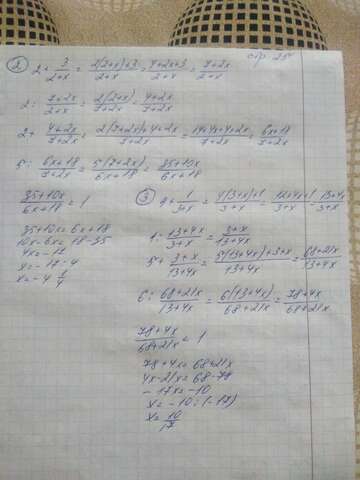 стр. 25
② 2+ 3/(2+x) = (2(2+x)+3)/(2+x) = (4+2x+3)/(2+x) = (7+2x)/(2+x)
2: (7+2x)/(2+x) = (2(2+x))/(7+2x) = (4+2x)/(7+2x)
2+ (4+2x)/(7+2x) = (2(7+2x)+4+2x)/(7+2x) = (14+4x+4+2x)/(7+2x) = (6x+18)/(7+2x)
5: (6x+18)/(7+2x) = (5(7+2x))/(6x+18) = (35+10x)/(6x+18)
(35+10x)/(6x+18) = 1
35+10x=6x+18
10x-6x=18-35
4x=-17
x=-17:4
x=-4 1/4
③ 4+ 1/(3+x) = (4(3+x)+1)/(3+x) = (12+4x+1)/(3+x) = (13+4x)/(3+x)
1: (13+4x)/(3+x) = (3+x)/(13+4x)
5+ (3+x)/(13+4x) = (5(13+4x)+3+x)/(13+4x) = (68+21x)/(13+4x)
6: (68+21x)/(13+4x) = (6(13+4x))/(68+21x) = (78+4x)/(68+21x)
(78+4x)/(68+21x) = 1
78+4x=68+21x
4x-21x=68-78
-17x=-10
x=-10:(-17)
x= 10/17